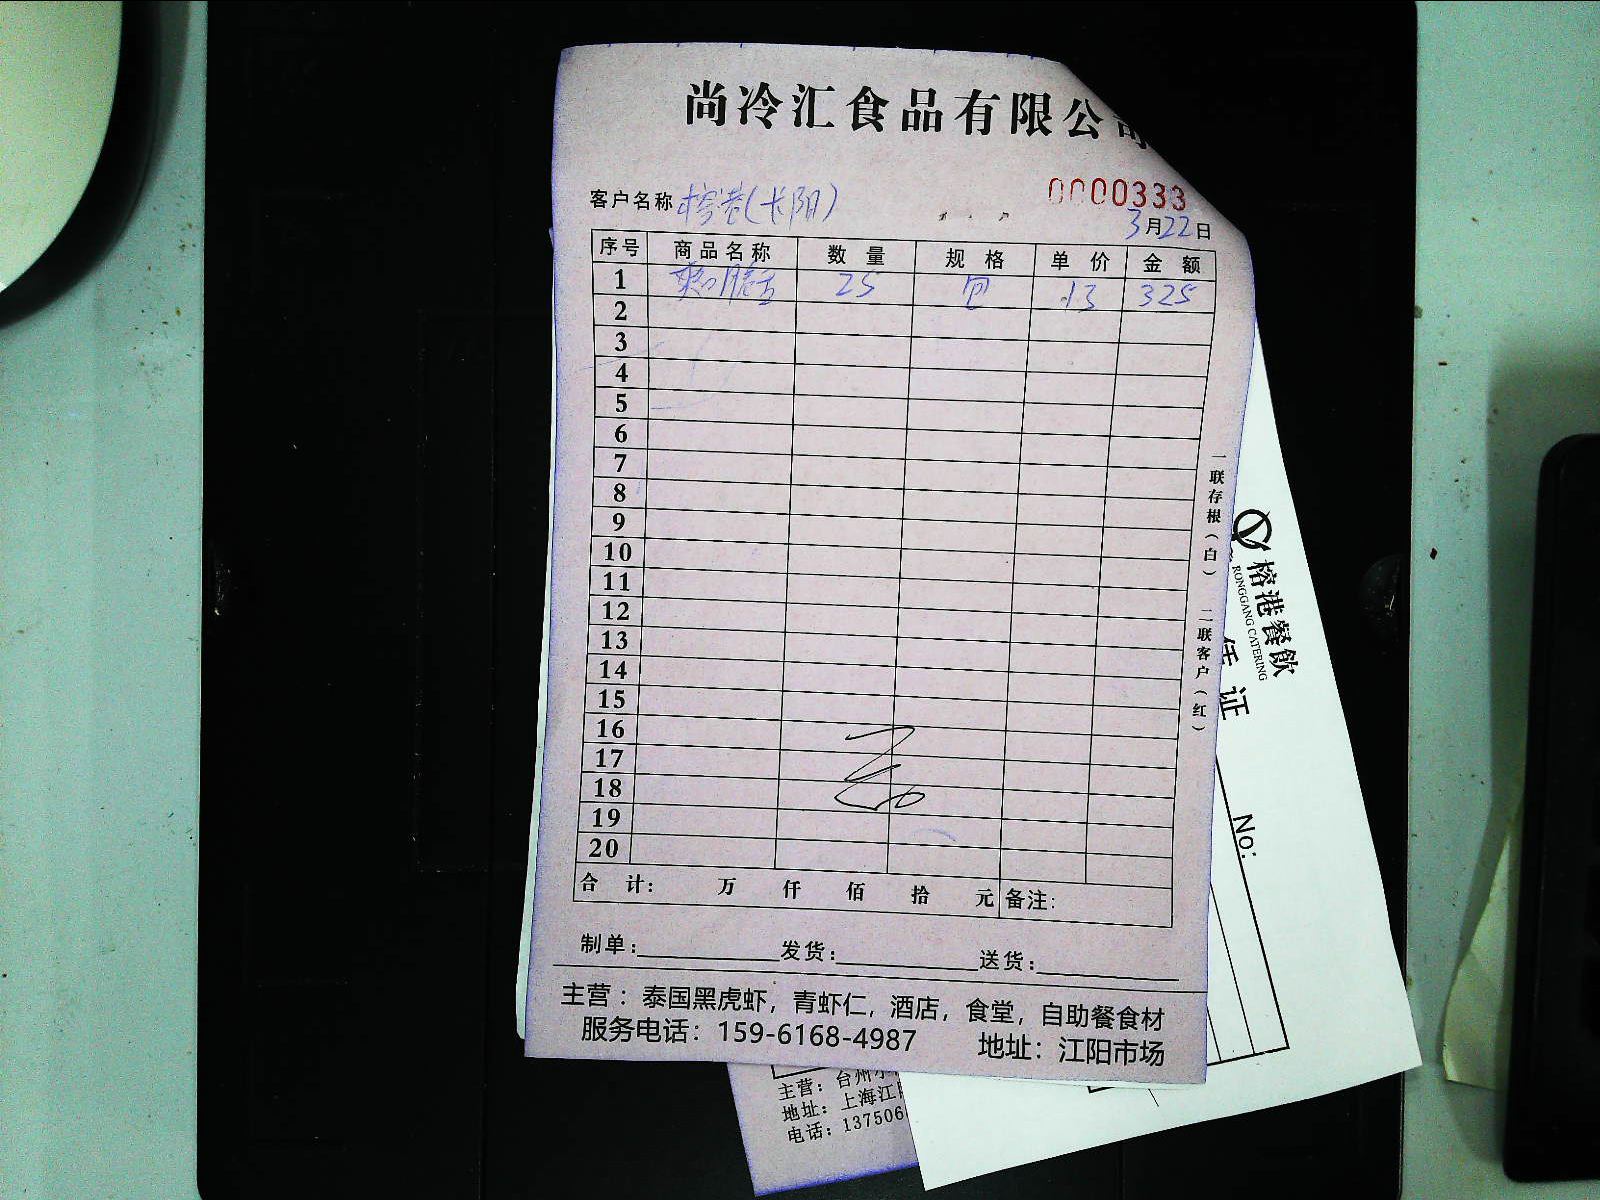 尚冷汇食品有限公司
0000333
客户名称 榕港(长阳)
3月22日
序号 商品名称 数量 规格 单价 金额
1 爽口脆舌 25 包 13 325
2
3
4
5
6
7
8
9
10
11
12
13
14
15
16
17
18
19
20
合计: 万 仟 佰 拾 元 备注:
制单: 发货: 送货:
主营：泰国黑虎虾，青虾仁，酒店，食堂，自助餐食材
服务电话：159-6168-4987 地址：江阳市场
一联存根(白) 二联客户(红)
榕港餐飲
RONGGANG CATERING
证
No:
主营: 台州
地址: 上海江
电话: 137506